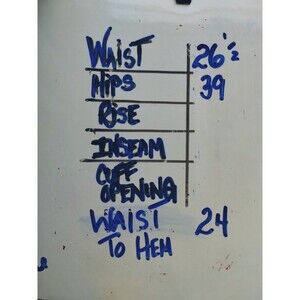 WAIST 26 1/2
HIPS 39
RISE
INSEAM
CUFF
OPENING
WAIST 24
TO HEM